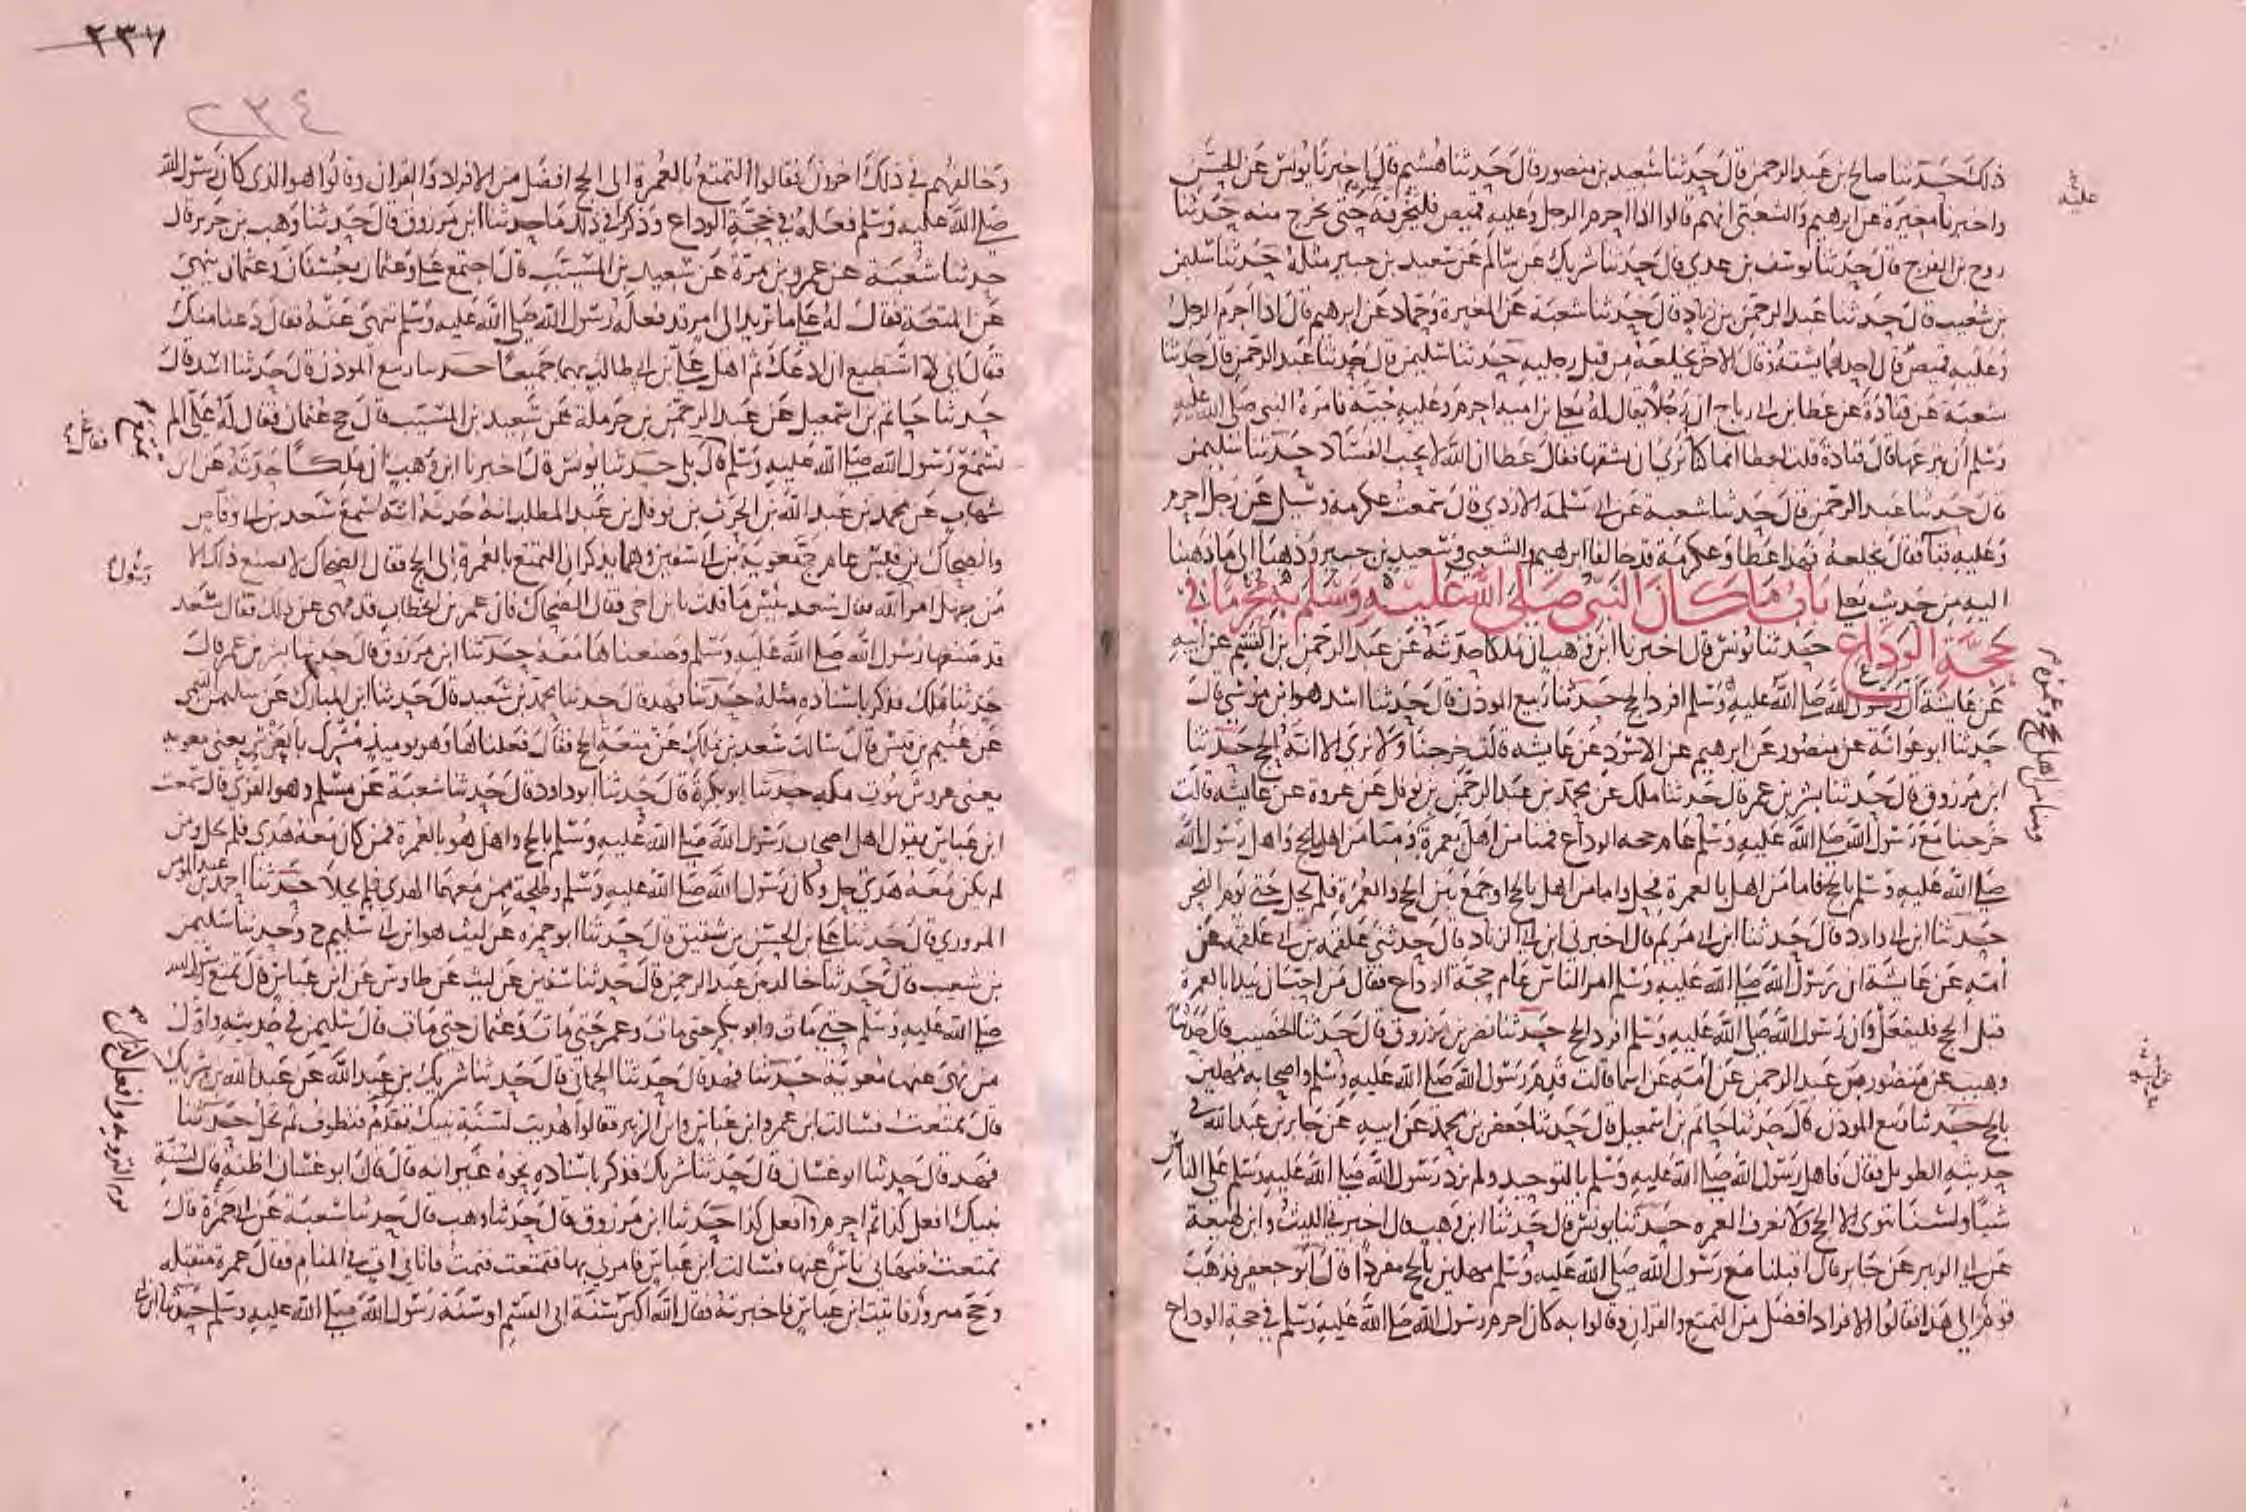 ذلك حدثنا صالح بن عبد الرحمن قال حدثنا سعيد بن منصور قال حدثنا هشيم قال اخبرنا يونس عن الحسن
واخبرنا مغيرة عن ابرهيم والشعبي انهم قالوا اذا احرم الرجل وعليه قميص فليخرقه حتى يخرج منه حدثنا
روح بن الفرج قال حدثنا يوسف بن عدي قال حدثنا شريك عن سالم عن سعيد بن جبير مثله حدثنا سليمن
بن شعيب قال حدثنا عبد الرحمن بن زياد قال حدثنا شعبة عن المغيرة وحماد عن ابرهيم قال اذا احرم الرجل
وعليه قميص قال احدهما يشقه وقال الاخر يخلعه من قبل رجليه حدثنا سليمن قال حدثنا عبد الرحمن قال حدثنا
شعبة عن قتادة عن عطا بن ابي رباح ان رجلا يقال له يعلى بن امية احرم وعليه جبة فامره النبي صلى الله عليه
وسلم ان ينزعها قال قتادة قلت لعطا انما كنا نرى ان يشقها فقال عطا ان الله لا يحب الفساد حدثنا سليمن
قال حدثنا عبد الرحمن قال حدثنا شعبة عن ابي سلمة الازدي قال سمعت عكرمة وسئل عن رجل احرم
وعليه قبا فقال يخلعه فهذا عطا وعكرمة قد خالفا ابرهيم والشعبي وسعيد بن جبير وذهبا الى ما ذهبنا
اليه من حديث يعلى باب ما كان النبي صلى الله عليه وسلم به محرما في
حجة الوداع حدثنا يونس قال اخبرنا ابن وهب ان ملكا حدثه عن عبد الرحمن بن القسم عن ابيه
عن عايشة ان رسول الله صلى الله عليه وسلم افرد الحج حدثنا ربيع الموذن قال حدثنا اسد هو ابن موسى قال
حدثنا ابو عوانة عن منصور عن ابرهيم عن الاسود عن عايشه قالت خرجنا ولا نرى الا انه الحج حدثنا
ابن مرزوق قال حدثنا بشر بن عمر قال حدثنا ملك عن محمد بن عبد الرحمن بن نوفل عن عروة عن عايشه قالت
خرجنا مع رسول الله صلى الله عليه وسلم عام حجة الوداع فمنا من اهل بعمرة ومنا من اهل بالحج واهل رسول الله
صلى الله عليه وسلم بالحج فاما من اهل بالعمرة فحل واما من اهل بالحج او جمع بين الحج والعمرة فلم يحل حتى يوم النحر
حدثنا ابن ابي داود قال حدثنا ابن ابي مريم قال اخبرني ابن ابي الزناد قال حدثني علقمة بن ابي علقمة عن
امه عن عايشة ان رسول الله صلى الله عليه وسلم امر الناس عام حجة الوداع فقال من احب ان يبدا بالعمرة
قبل الحج فليفعل وان رسول الله صلى الله عليه وسلم افرد الحج حدثنا نصر بن مرزوق قال حدثنا الخصيب قال حدثنا
وهيب عن منصور بن عبد الرحمن عن امه عن اسما قالت قدم رسول الله صلى الله عليه وسلم واصحابه مهلين
بالحج حدثنا ربيع الموذن قال حدثنا حاتم بن اسمعيل قال حدثنا جعفر بن محمد عن ابيه عن جابر بن عبد الله في
حديثه الطويل فقال فاهل رسول الله صلى الله عليه وسلم بالتوحيد ولم يزد رسول الله صلى الله عليه وسلم على الناس
شيا ولسنا ننوي الا الحج ولا نعرف العمره حدثنا يونس قال حدثنا ابن وهب قال اخبرني الليث وابن لهيعة
عن ابي الزبير عن جابر قال اقبلنا مع رسول الله صلى الله عليه وسلم مهلين بالحج مفردا قال ابو جعفر فذهب
قوم الى هذا فقالوا الافراد افضل من التمتع والقران وقالوا به كان احرم رسول الله صلى الله عليه وسلم في حجة الوداع
ومنا من اهل بحج وعمرة
٢٣٧
٢٣٤
وخالفهم في ذلك اخرون فقالوا التمتع بالعمرة الى الحج افضل من الافراد والقران وقالوا هو الذي كان رسول الله
صلى الله عليه وسلم فعله في حجة الوداع وذكروا في ذلك ما حدثنا ابن مرزوق قال حدثنا وهب بن جرير قال
حدثنا شعبة عن عمرو بن مرة عن سعيد بن المسيب قال اجتمع علي وعثمان بعسفان وعثمان ينهى
عن المتعة فقال له علي ما تريد الى امر قد فعله رسول الله صلى الله عليه وسلم تنهى عنه فقال دعنا منك
فقال اني لا استطيع ان ادعك ثم اهل علي بن ابي طالب بهما جميعا حدثنا ربيع الموذن قال حدثنا اسد قال
حدثنا حاتم بن اسمعيل عن عبد الرحمن بن حرملة عن سعيد بن المسيب قال حج عثمان فقال له علي الم
تسمع رسول الله صلى الله عليه وسلم قال بلى حدثنا يونس قال اخبرنا ابن وهب ان ملكا حدثه عن ابن
شهاب عن محمد بن عبد الله بن الحرث بن نوفل بن عبد المطلب انه حدثه انه سمع سعد بن ابي وقاص
والضحاك بن قيس عام حج معوية بن ابي سفين وهما يذكران التمتع بالعمرة الى الحج فقال الضحاك لا يصنع ذلك الا
من جهل امر الله فقال سعد بئس ما قلت يا ابن اخي فقال الضحاك فان عمر بن الخطاب قد نهى عن ذلك فقال سعد
قد صنعها رسول الله صلى الله عليه وسلم وصنعناها معه حدثنا ابن مرزوق قال حدثنا بشر بن عمر قال
حدثنا ملك فذكر باسناده مثله حدثنا فهد قال حدثنا محمد بن سعيد قال حدثنا ابن المبارك عن سليمن التيمي
عن غنيم بن قيس قال سالت سعد بن ملك عن متعة الحج فقال فعلناها وهو يوميذ مشرك بالعرش يعني معوية
يعني عروش بيوت مكه حدثنا ابو بكرة قال حدثنا ابو داود قال حدثنا شعبة عن مسلم وهو القري قال سمعت
ابن عباس يقول اهل اصحاب رسول الله صلى الله عليه وسلم بالحج واهل هو بالعمرة فمن كان معه هدي فلم يحل ومن
لم يكن معه هدي حل وكان رسول الله صلى الله عليه وسلم وطلحة ممن معهما الهدي فلم يحلا حدثنا احمد بن عبد المومن
المروزي قال حدثنا علي بن الحسن بن شقيق قال حدثنا ابو حمزه عن ليث هو ابن ابي سليم ح وحدثنا سليمن
بن شعيب قال حدثنا خالد بن عبد الرحمن قال حدثنا سفين عن ليث عن طاوس عن ابن عباس قال تمتع رسول الله
صلى الله عليه وسلم حتى مات وابو بكر حتى مات وعمر حتى مات وعثمان حتى مات قال سليمن في حديثه واول
من نهى عنها معوية حدثنا فهد قال حدثنا الحماني قال حدثنا شريك بن عبد الله عن عبد الله بن شريك
قال تمتعت فسالت ابن عمر وابن عباس وابن الزبير فقالوا هديت لسنة نبيك تقدم فتطوف ثم تحل حدثنا
فهد قال حدثنا ابو غسان قال حدثنا شريك فذكر باسناده نحوه غير انه قال قال ابو غسان اظنه قال لسنة
نبيك افعل كذا ثم احرم وافعل كذا حدثنا ابن مرزوق قال حدثنا وهب قال حدثنا شعبة عن ابي جمرة قال
تمتعت فنهاني ناس عنها فسالت ابن عباس فامرني بها فتمتعت فنمت فاتاني ات في المنام فقال عمرة متقبله
وحج مبرور فاتيت ابن عباس فاخبرته فقال الله اكبر سنة ابي القسم او سنة رسول الله صلى الله عليه وسلم حدثنا
رسول
يوم التروية وافعل